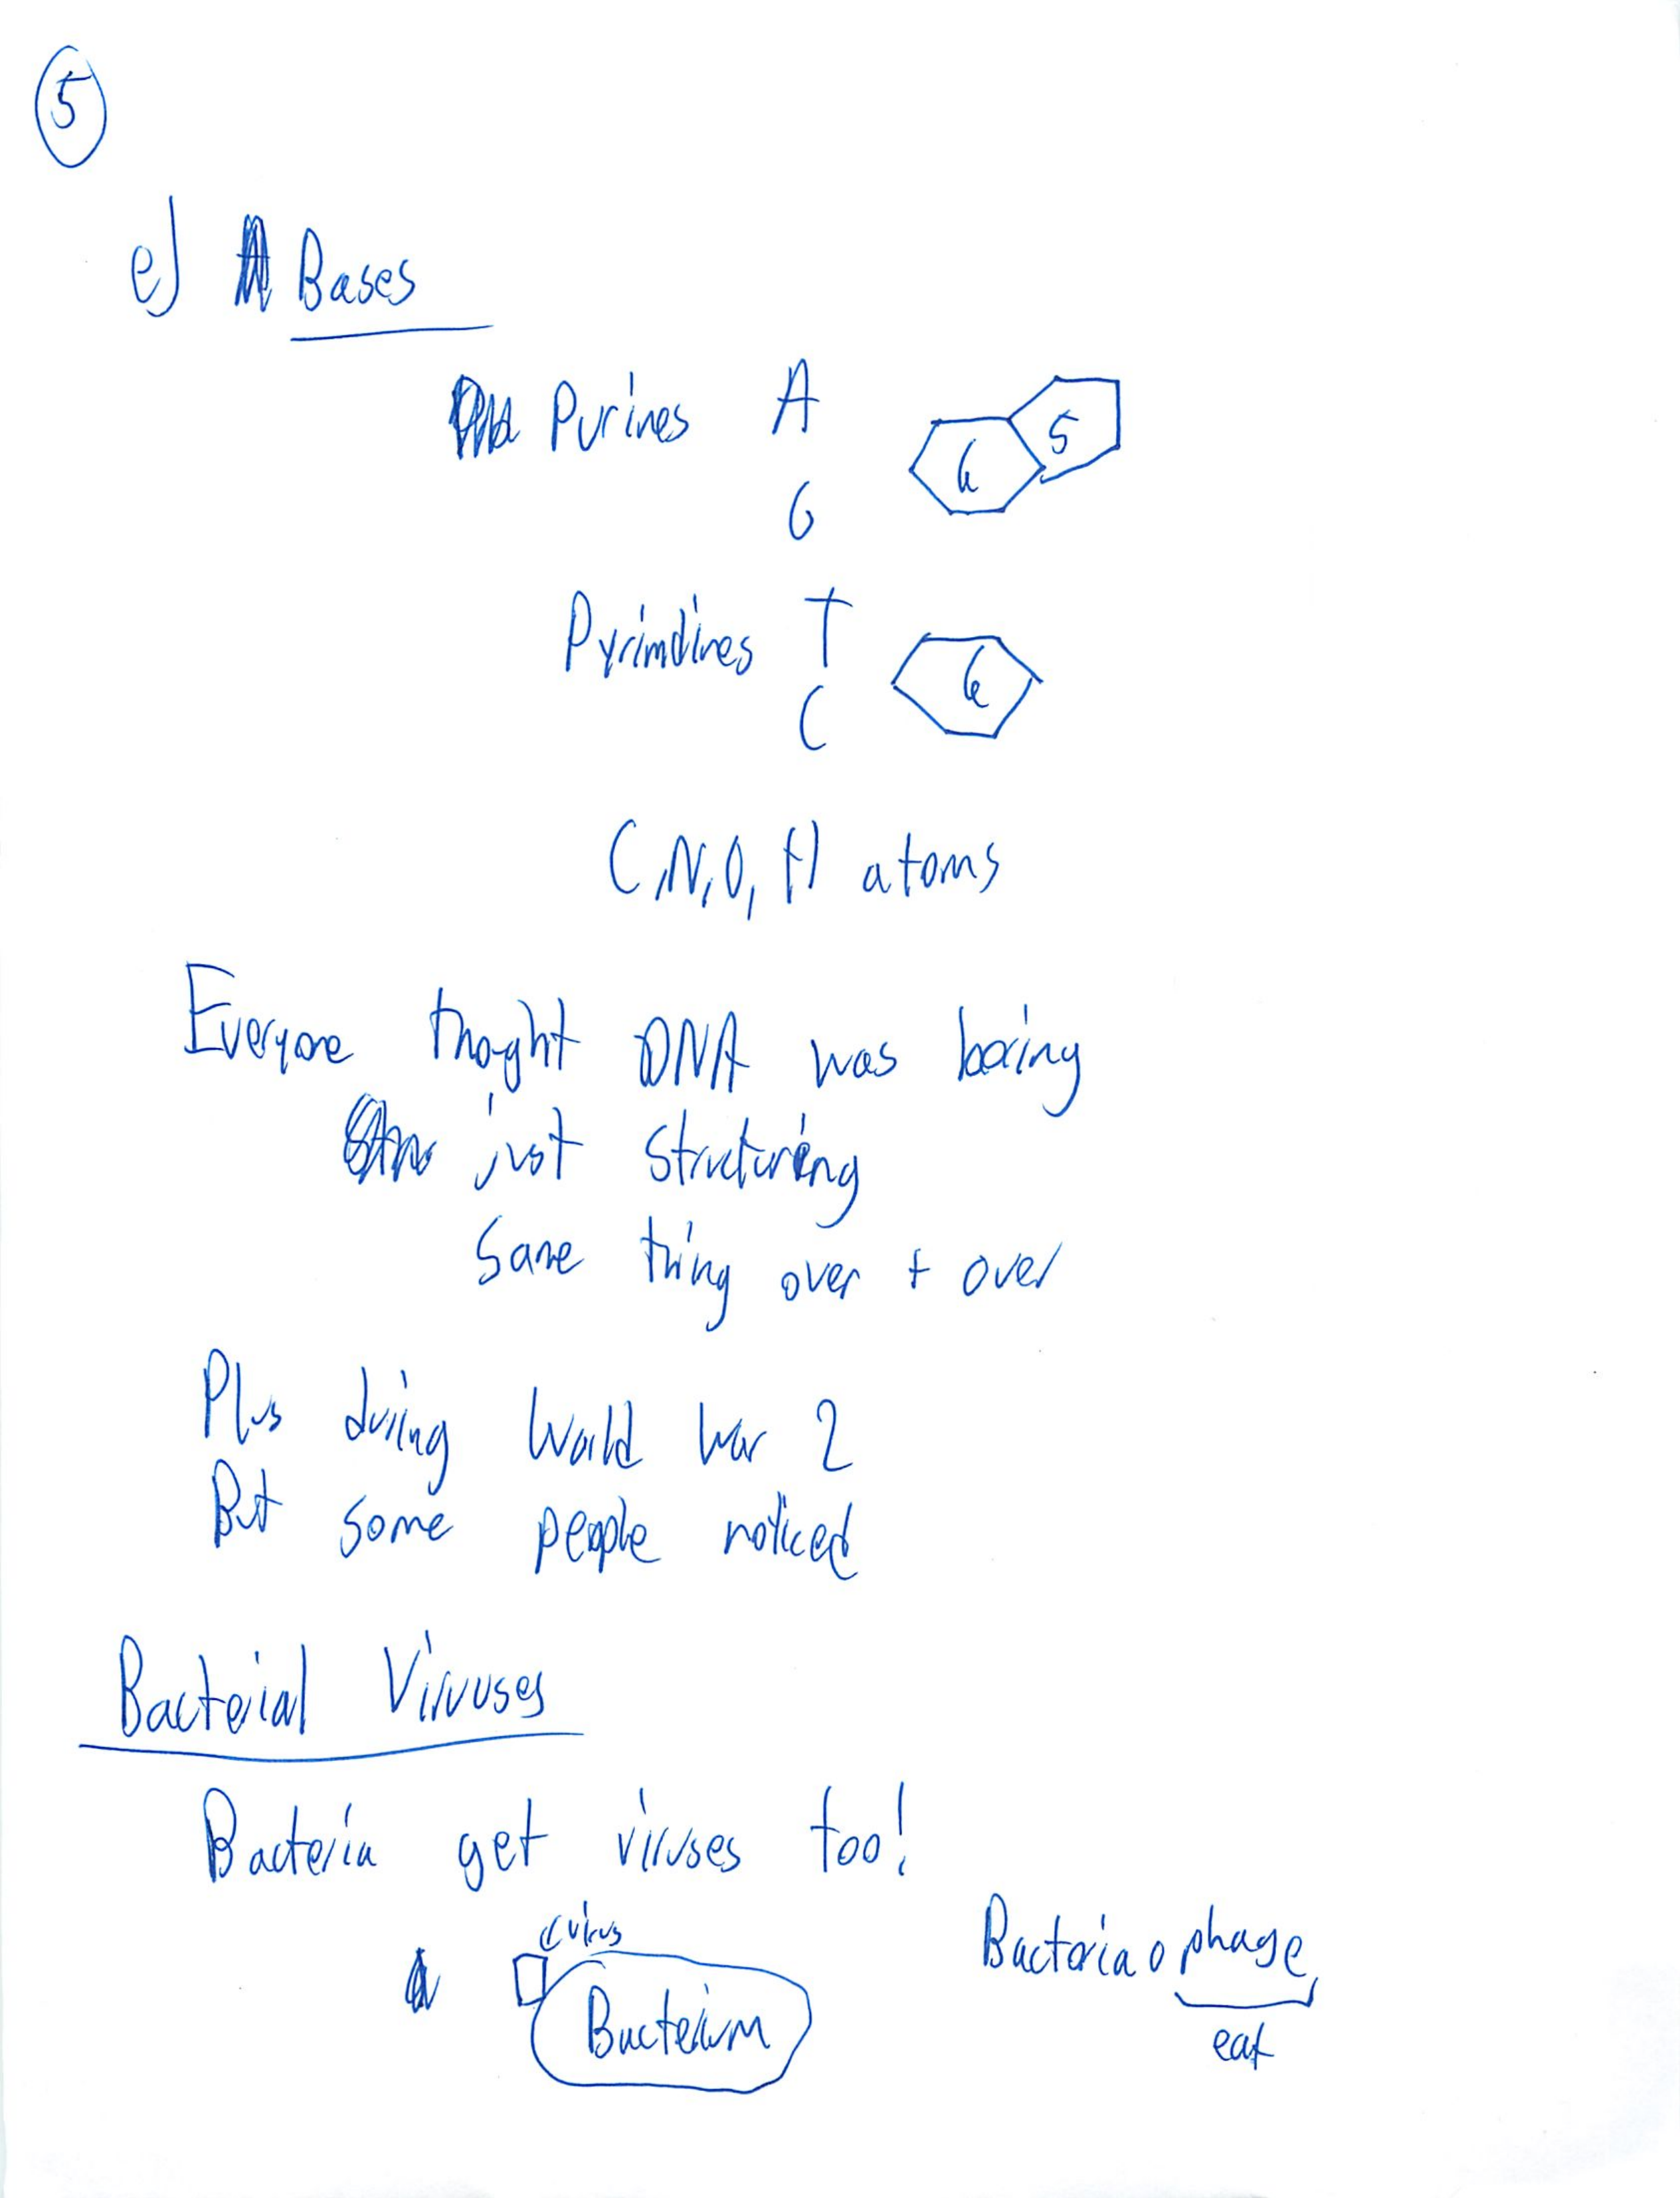 5
e) Bases
Purines A
6 5
G
Pyrimdines T
6
C
C, N, O, H atoms
Everyone thoght DNA was boring
just structuring
Same thing over + over
Plus during World War 2
But some people noticed
Bacterial Viruses
Bacteria get viruses too!
virus
Bacteriaophage
Bacterium
eat